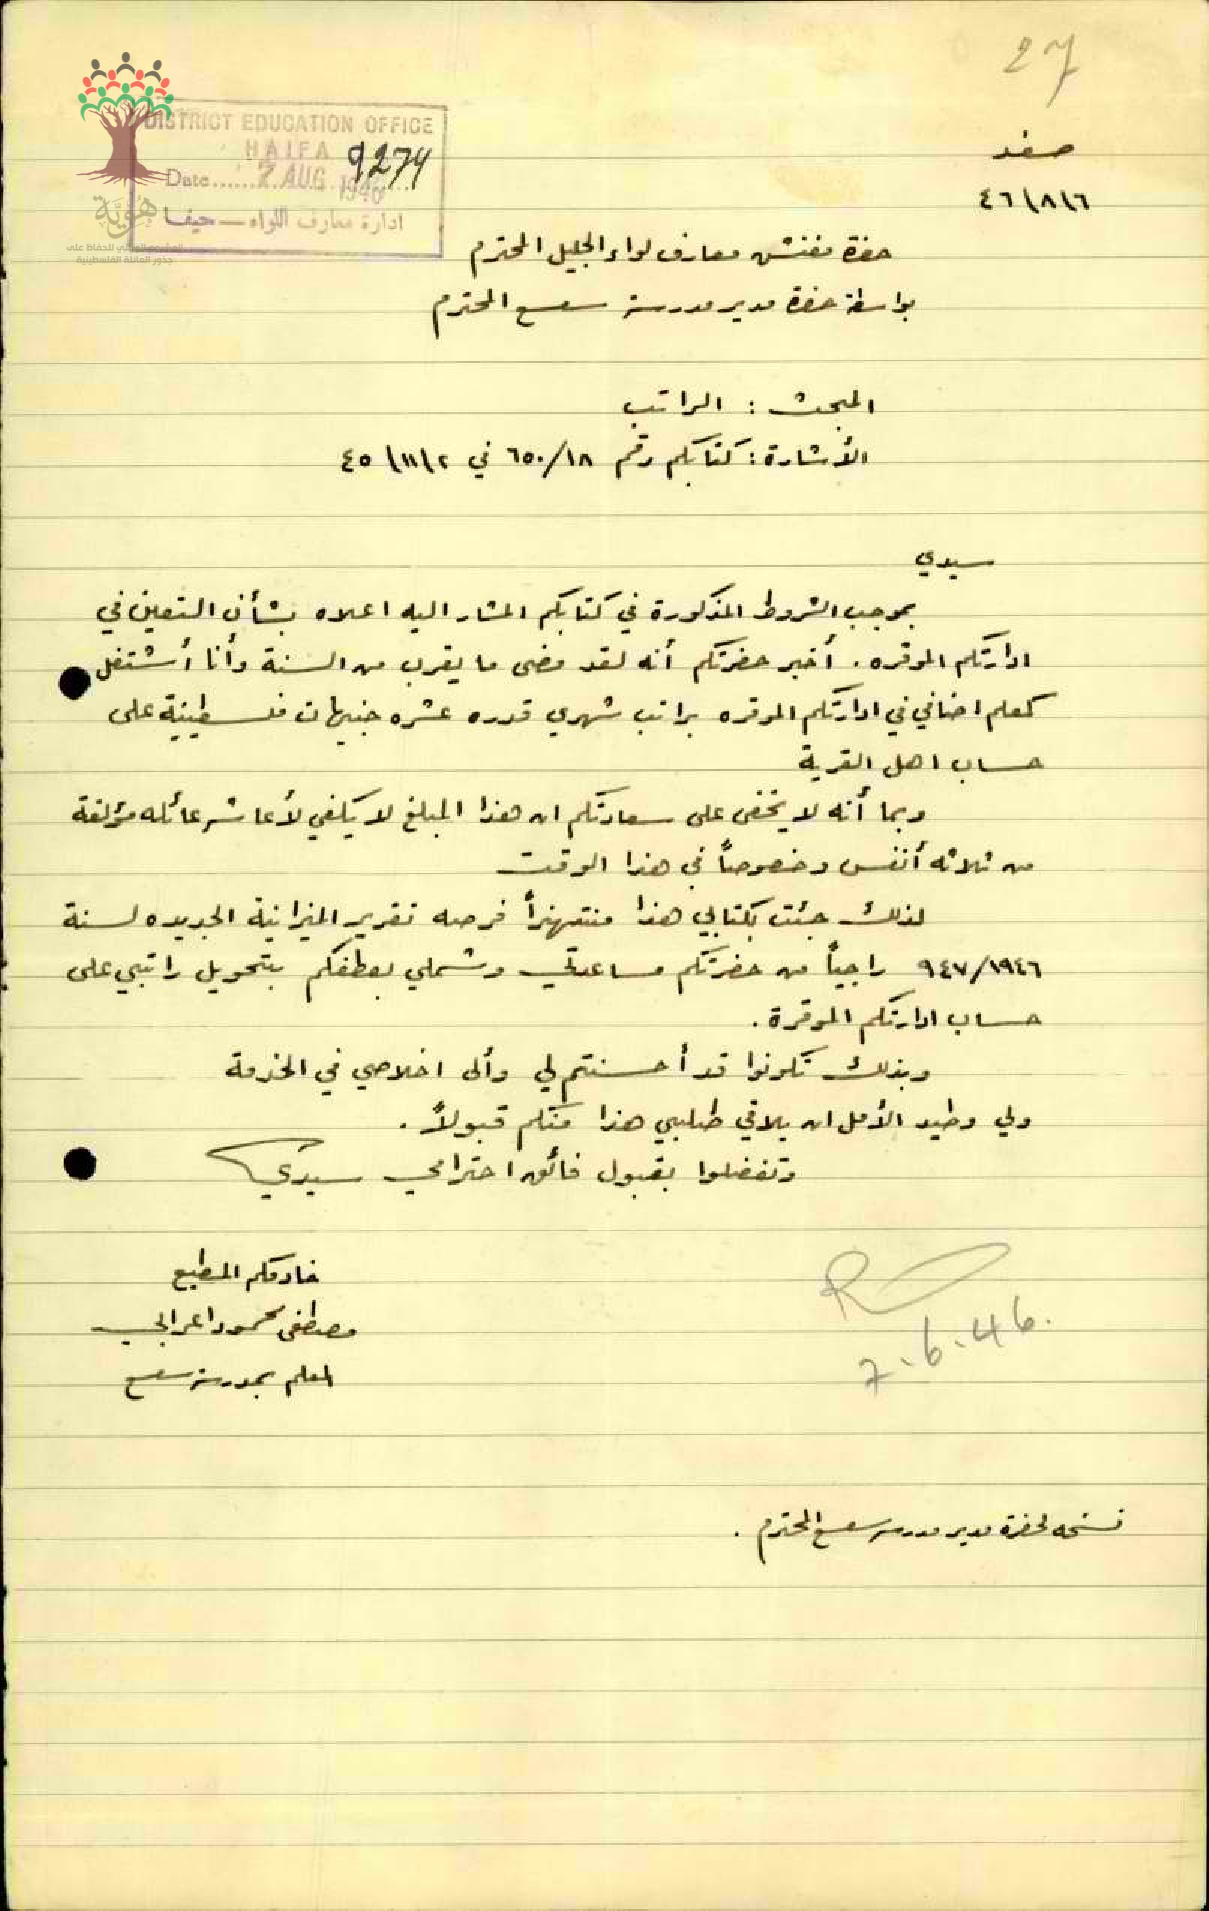 27
DISTRICT EDUCATION OFFICE
HAIFA
9274
Date ...... 7 AUG 1946
ادارة معارف اللواء — حيفا
هُوِيَّة
للحفاظ على
جذور العائلة الفلسطينية
صفد
٤٦/٨/٦
حضرة مفتش معارف لواء الجليل المحترم
بواسطة حضرة مدير مدرسة سعسع المحترم
المبحث : الراتب
الأشارة : كتابكم رقم ٦٥٠/١٨ في ٤٥/١١/٢
سيدي
بموجب الشروط المذكورة في كتابكم المشار اليه اعلاه بشأن التعيين في
ادارتكم الموقره . أخبر حضرتكم أنه لقد مضى ما يقرب من السنة وأنا أشتغل
كمعلم اضافي في ادارتكم الموقره براتب شهري قدره عشره جنيهات فلسطينية على
حساب اهل القرية
وبما أنه لا يخفى على سعادتكم ان هذا المبلغ لا يكفي لأعاشة عائله مؤلفة
من ثلاثه أنفس وخصوصاً في هذا الوقت
لذلك جئت بكتابي هذا منتهزاً فرصه تقرير الميزانية الجديده لسنة
٩٤٧/١٩٤٦ راجياً من حضرتكم مساعدتي وشملي بعطفكم بتحويل راتبي على
حساب ادارتكم الموقرة .
وبذلك تكونوا قد أحسنتم لي وألى اخلاصي في الخدمة
ولي وطيد الأمل ان يلاقي طلبي هذا منكم قبولاً .
وتفضلوا بقبول فائق احترامي سيدي
خادمكم المطيع
مصطفى محمود اعرابي
المعلم بمدرسة سعسع
7.6.46.
نسخه لحضرة مدير مدرسة سعسع المحترم .